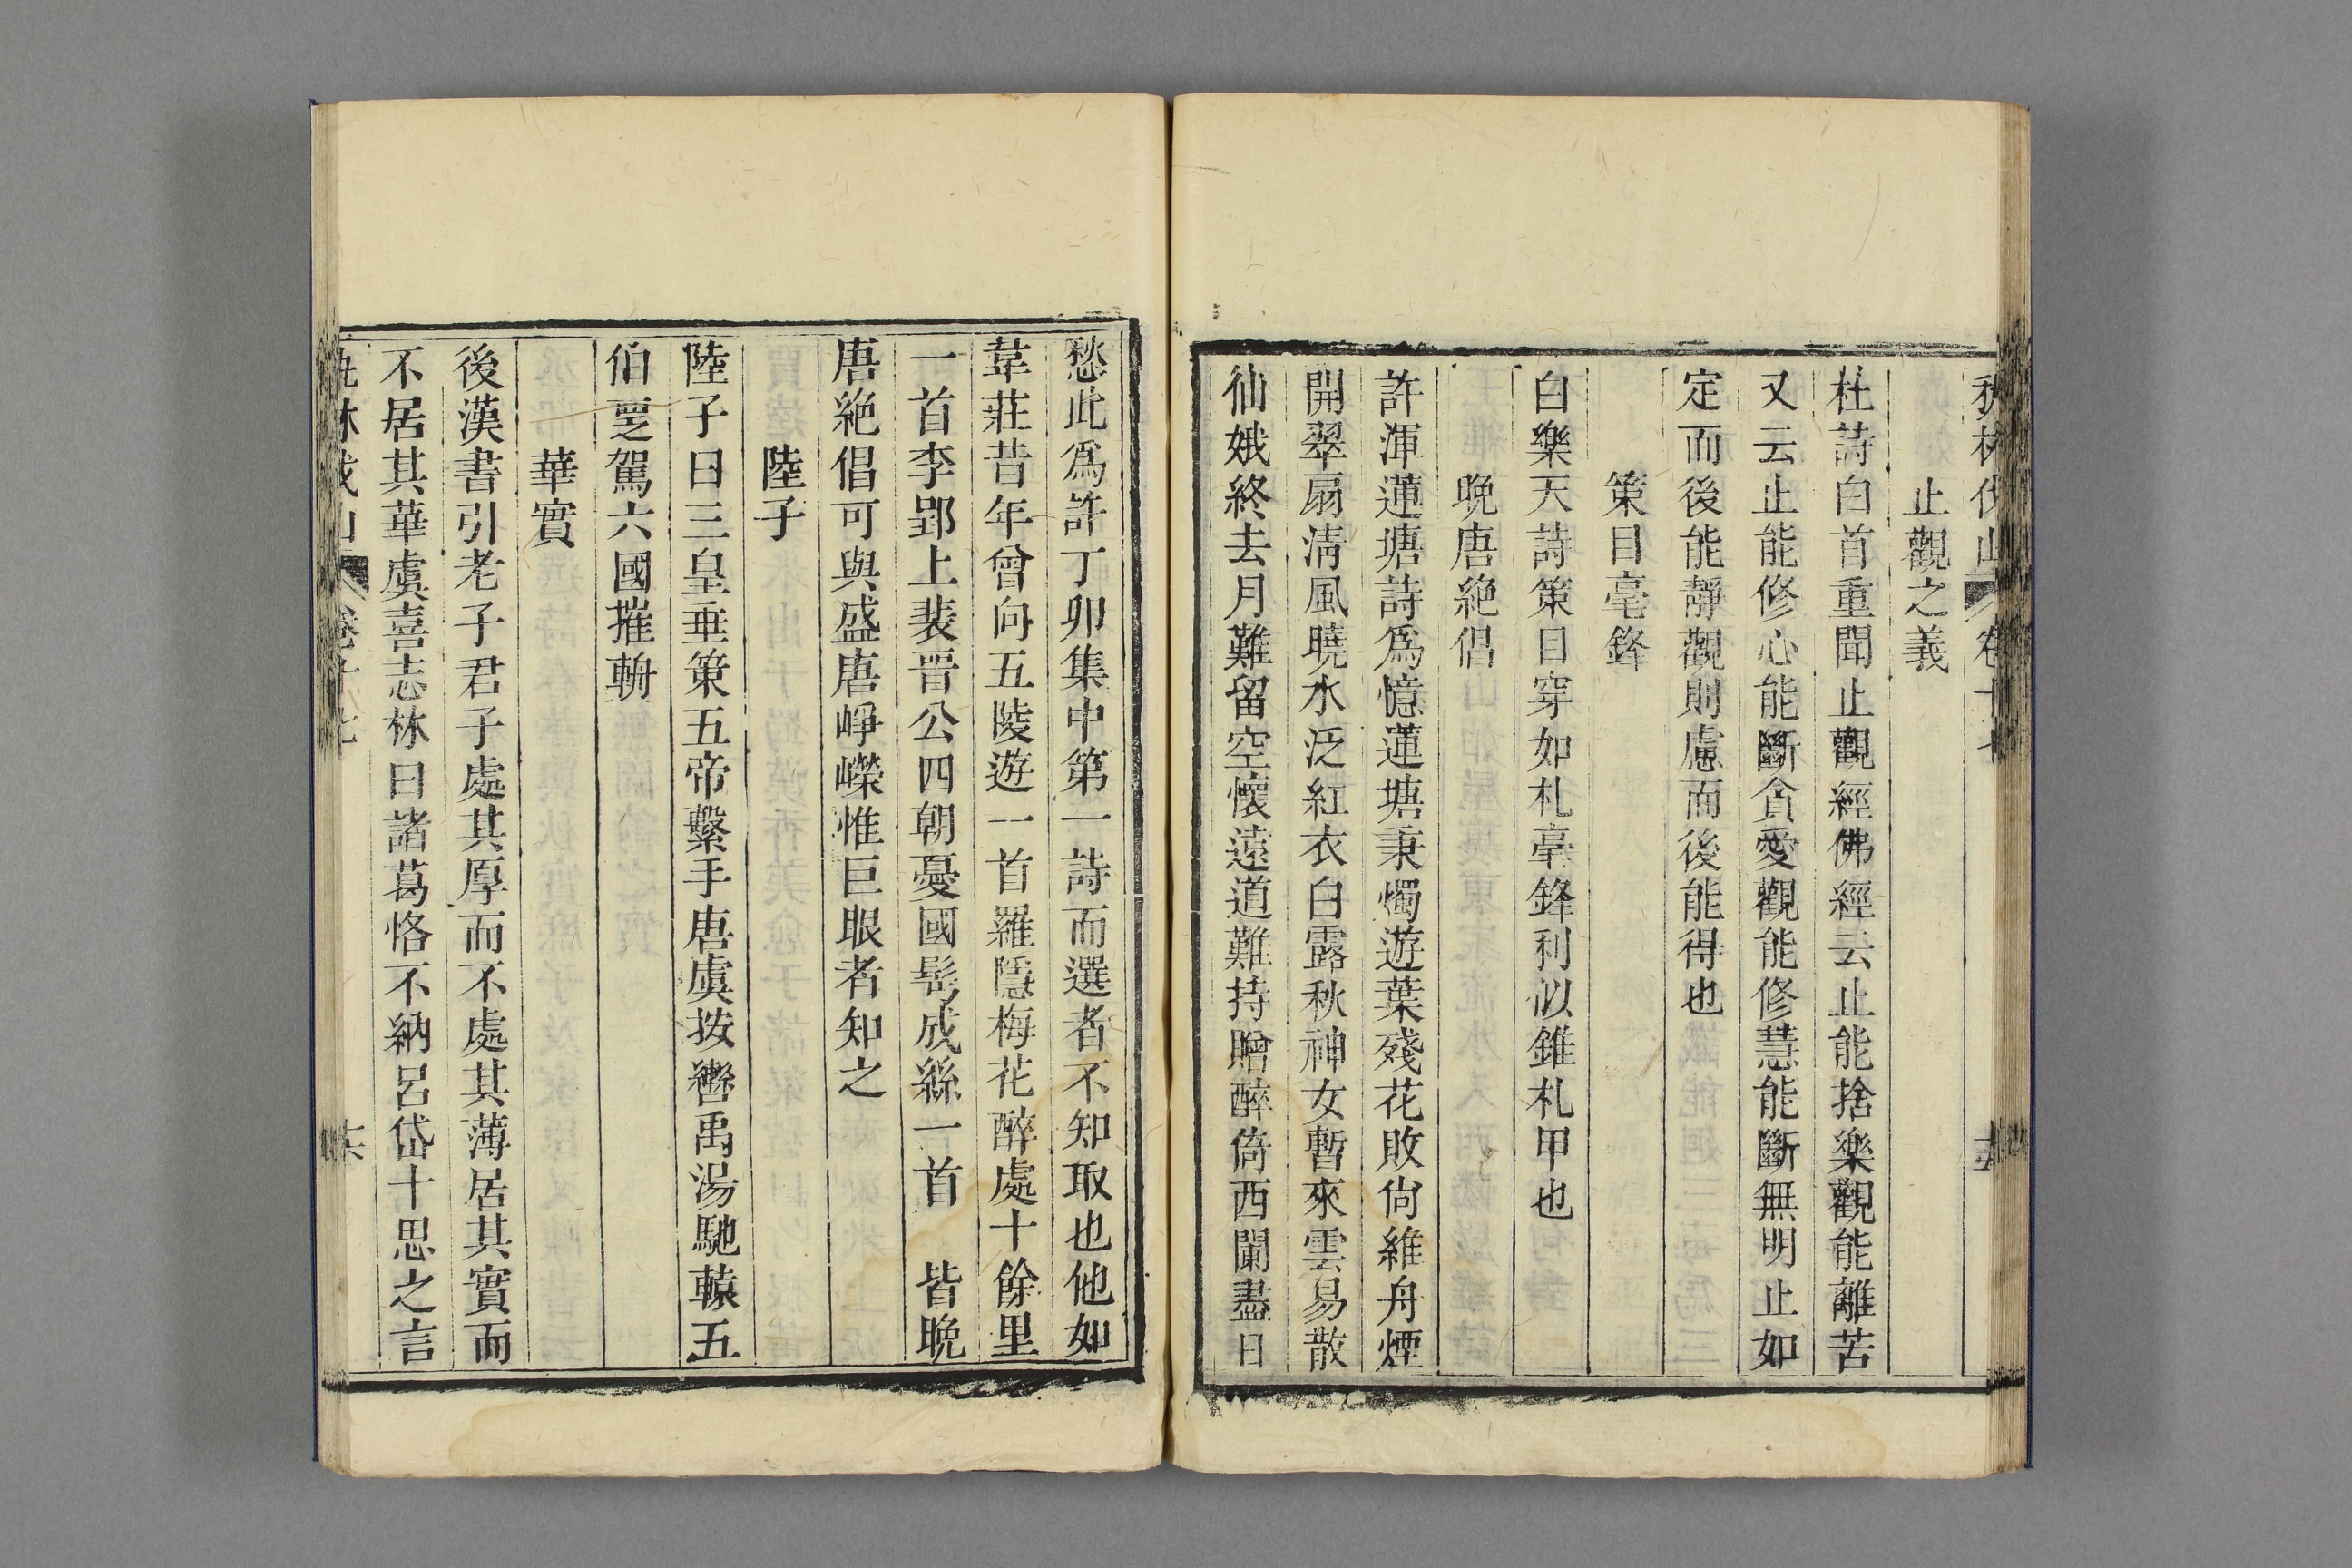 止觀之義
杜詩白首重聞止觀經佛經云止能捨樂觀能離苦
又云止能修心能斷貪愛觀能修慧能斷無明止如
定而後能靜觀則慮而後能得也
策目毫鋒
白樂天詩策目穿如札毫鋒利似錐札甲也
晚唐絶倡
許渾蓮塘詩爲憶蓮塘秉燭遊葉殘花敗尙維舟煙
開翠扇淸風曉水泛紅衣白露秋神女暫來雲易散
仙娥終去月難留空懷遠道難持贈醉倚西闌盡日
愁此爲許丁卯集中第一詩而選者不知取也他如
韋莊昔年曾向五陵遊一首羅隱梅花醉處十餘里
一首李郢上裴晋公四朝憂國鬂成絲一首 皆晚
唐絶倡可與盛唐崢嶸惟巨眼者知之
陸子
陸子曰三皇垂策五帝繫手唐虞按轡禹湯馳轅五
伯更駕六國摧輈
華實
後漢書引老子君子處其厚而不處其薄居其實而
不居其華虞喜志林曰諸葛恪不納呂岱十思之言
卷十七